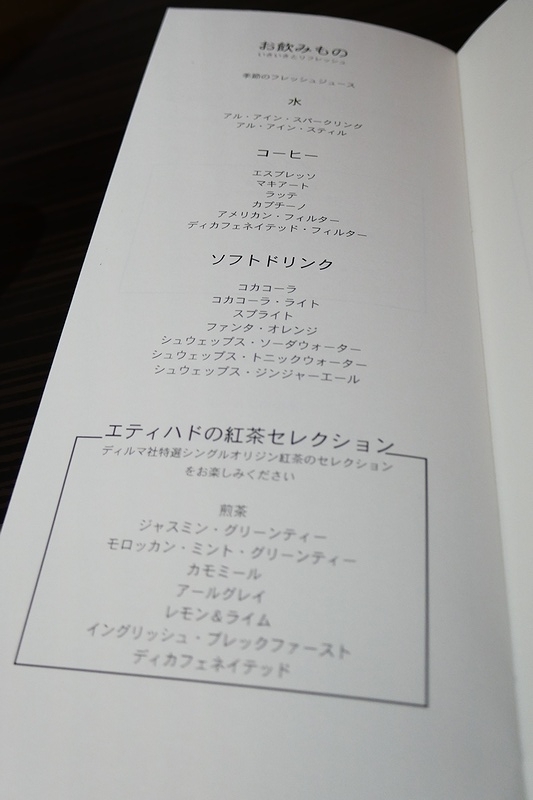 お飲みもの
いきいきとリフレッシュ
季節のフレッシュジュース
水
アル・アイン・スパークリング
アル・アイン・スティル
コーヒー
エスプレッソ
マキアート
ラッテ
カプチーノ
アメリカン・フィルター
ディカフェネイテッド・フィルター
ソフトドリンク
コカコーラ
コカコーラ・ライト
スプライト
ファンタ・オレンジ
シュウェップス・ソーダウォーター
シュウェップス・トニックウォーター
シュウェップス・ジンジャーエール
エティハドの紅茶セレクション
ディルマ社特選シングルオリジン紅茶のセレクション
をお楽しみください
煎茶
ジャスミン・グリーンティー
モロッカン・ミント・グリーンティー
カモミール
アールグレイ
レモン&ライム
イングリッシュ・ブレックファースト
ディカフェネイテッド